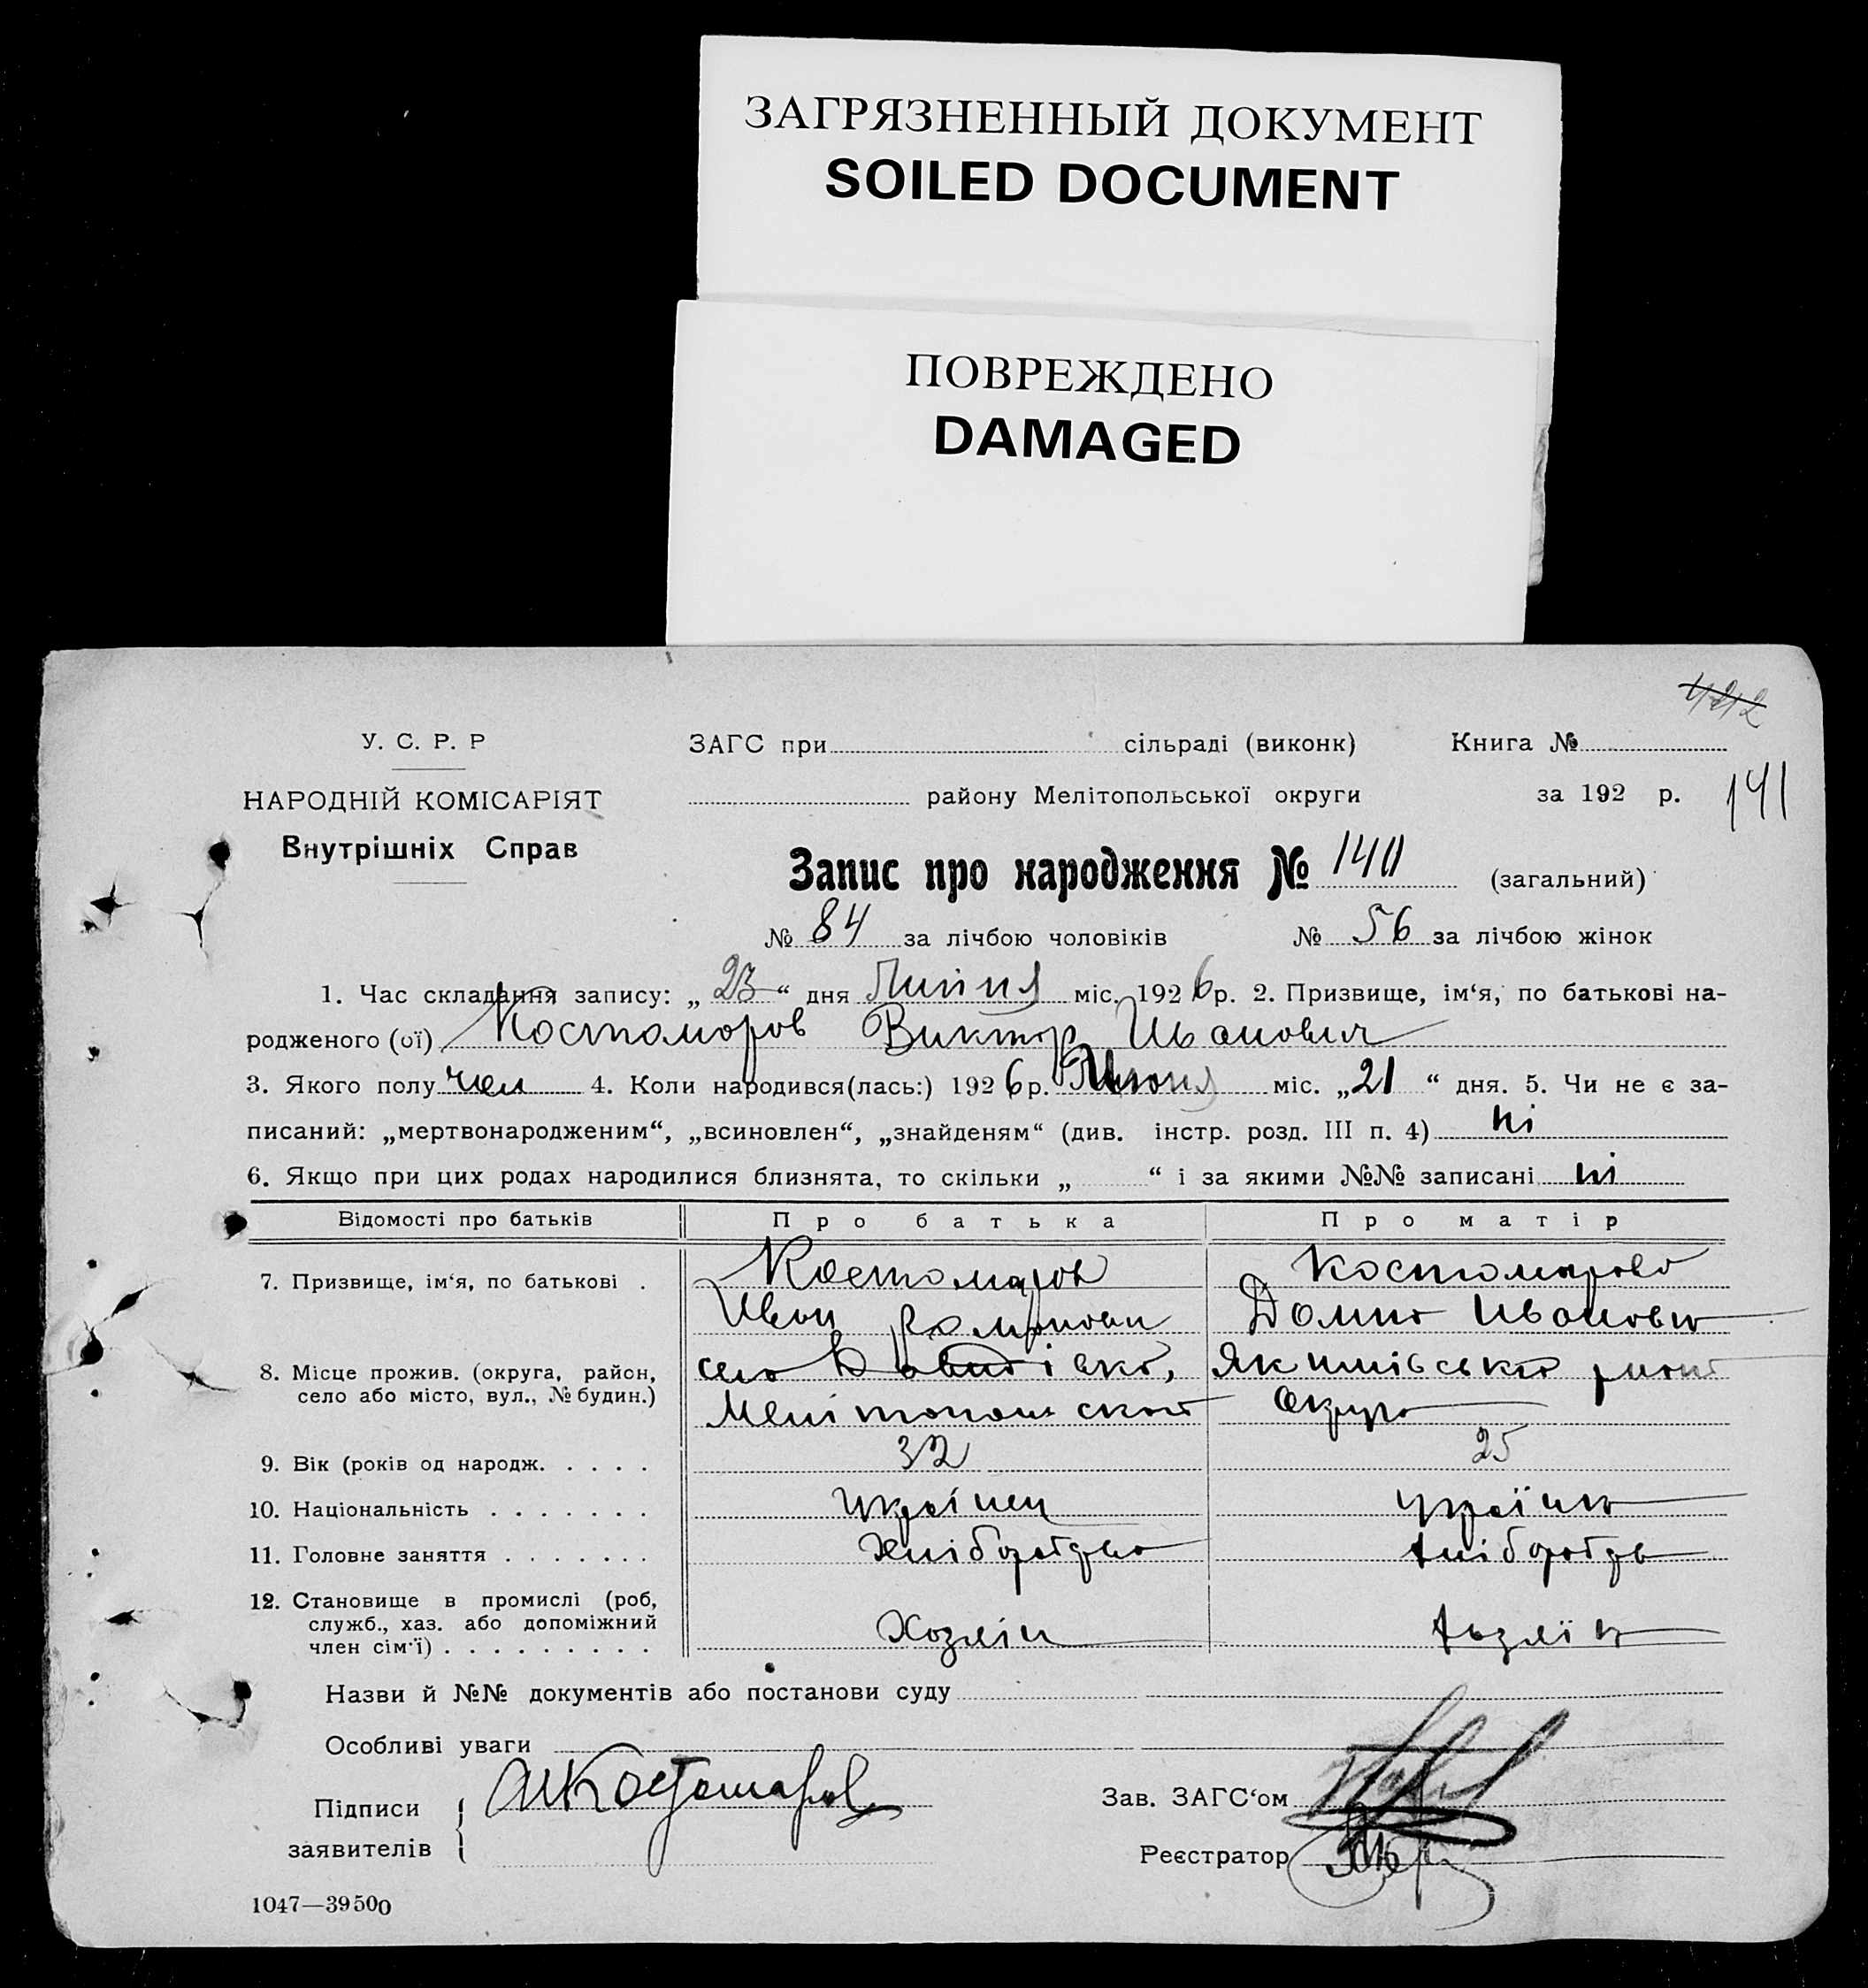 ЗАГРЯЗНЕННЫЙ ДОКУМЕНТ
SOILED DOCUMENT
ПОВРЕЖДЕНО
DAMAGED
4212
У. С. Р. Р
НАРОДНІЙ КОМІСАРІЯТ
Внутрішніх Справ
ЗАГС при сільраді (виконк) Книга №
району Мелітопольської округи за 192 р. 141
Запис про народження № 140 (загальний)
№ 84 за лічбою чоловіків № 56 за лічбою жінок
1. Час складання запису: „23“ дня Липня міс. 1926 р. 2. Призвище, ім‘я, по батькові на-
родженого (ої) Костоморов Виктор Иванович
3. Якого полу чол 4. Коли народився(лась:) 1926 р. міс. „21“ дня. 5. Чи не є за-
писаний: „мертвонародженим“, „всиновлен“, „знайденям“ (див. інстр. розд. III п. 4) ні
6. Якщо при цих родах народилися близнята, то скільки „ “ і за якими №№ записані ні
Відомості про батьків Про батька Про матір
7. Призвище, ім‘я, по батькові . Костомаров Костомарова
Иван Романови Домна Ивановн
8. Місце прожив. (округа, район, село або місто, вул., № будин.) село Якимівського район
Мелітопольской Округа
9. Вік (років од народж. . . . . 32 25
10. Національність . . . . . . . Українец українка
11. Головне заняття . . . . . . . Хліборобство хліборобств
12. Становище в промислі (роб, служб., хаз. або допоміжний член сім‘ї) . . . . . . . . . Хозяїн хозяїн
Назви й №№ документів або постанови суду
Особливі уваги
Підписи заявителів ИКостомаров
Зав. ЗАГС‘ом
Реєстратор
1047—39500